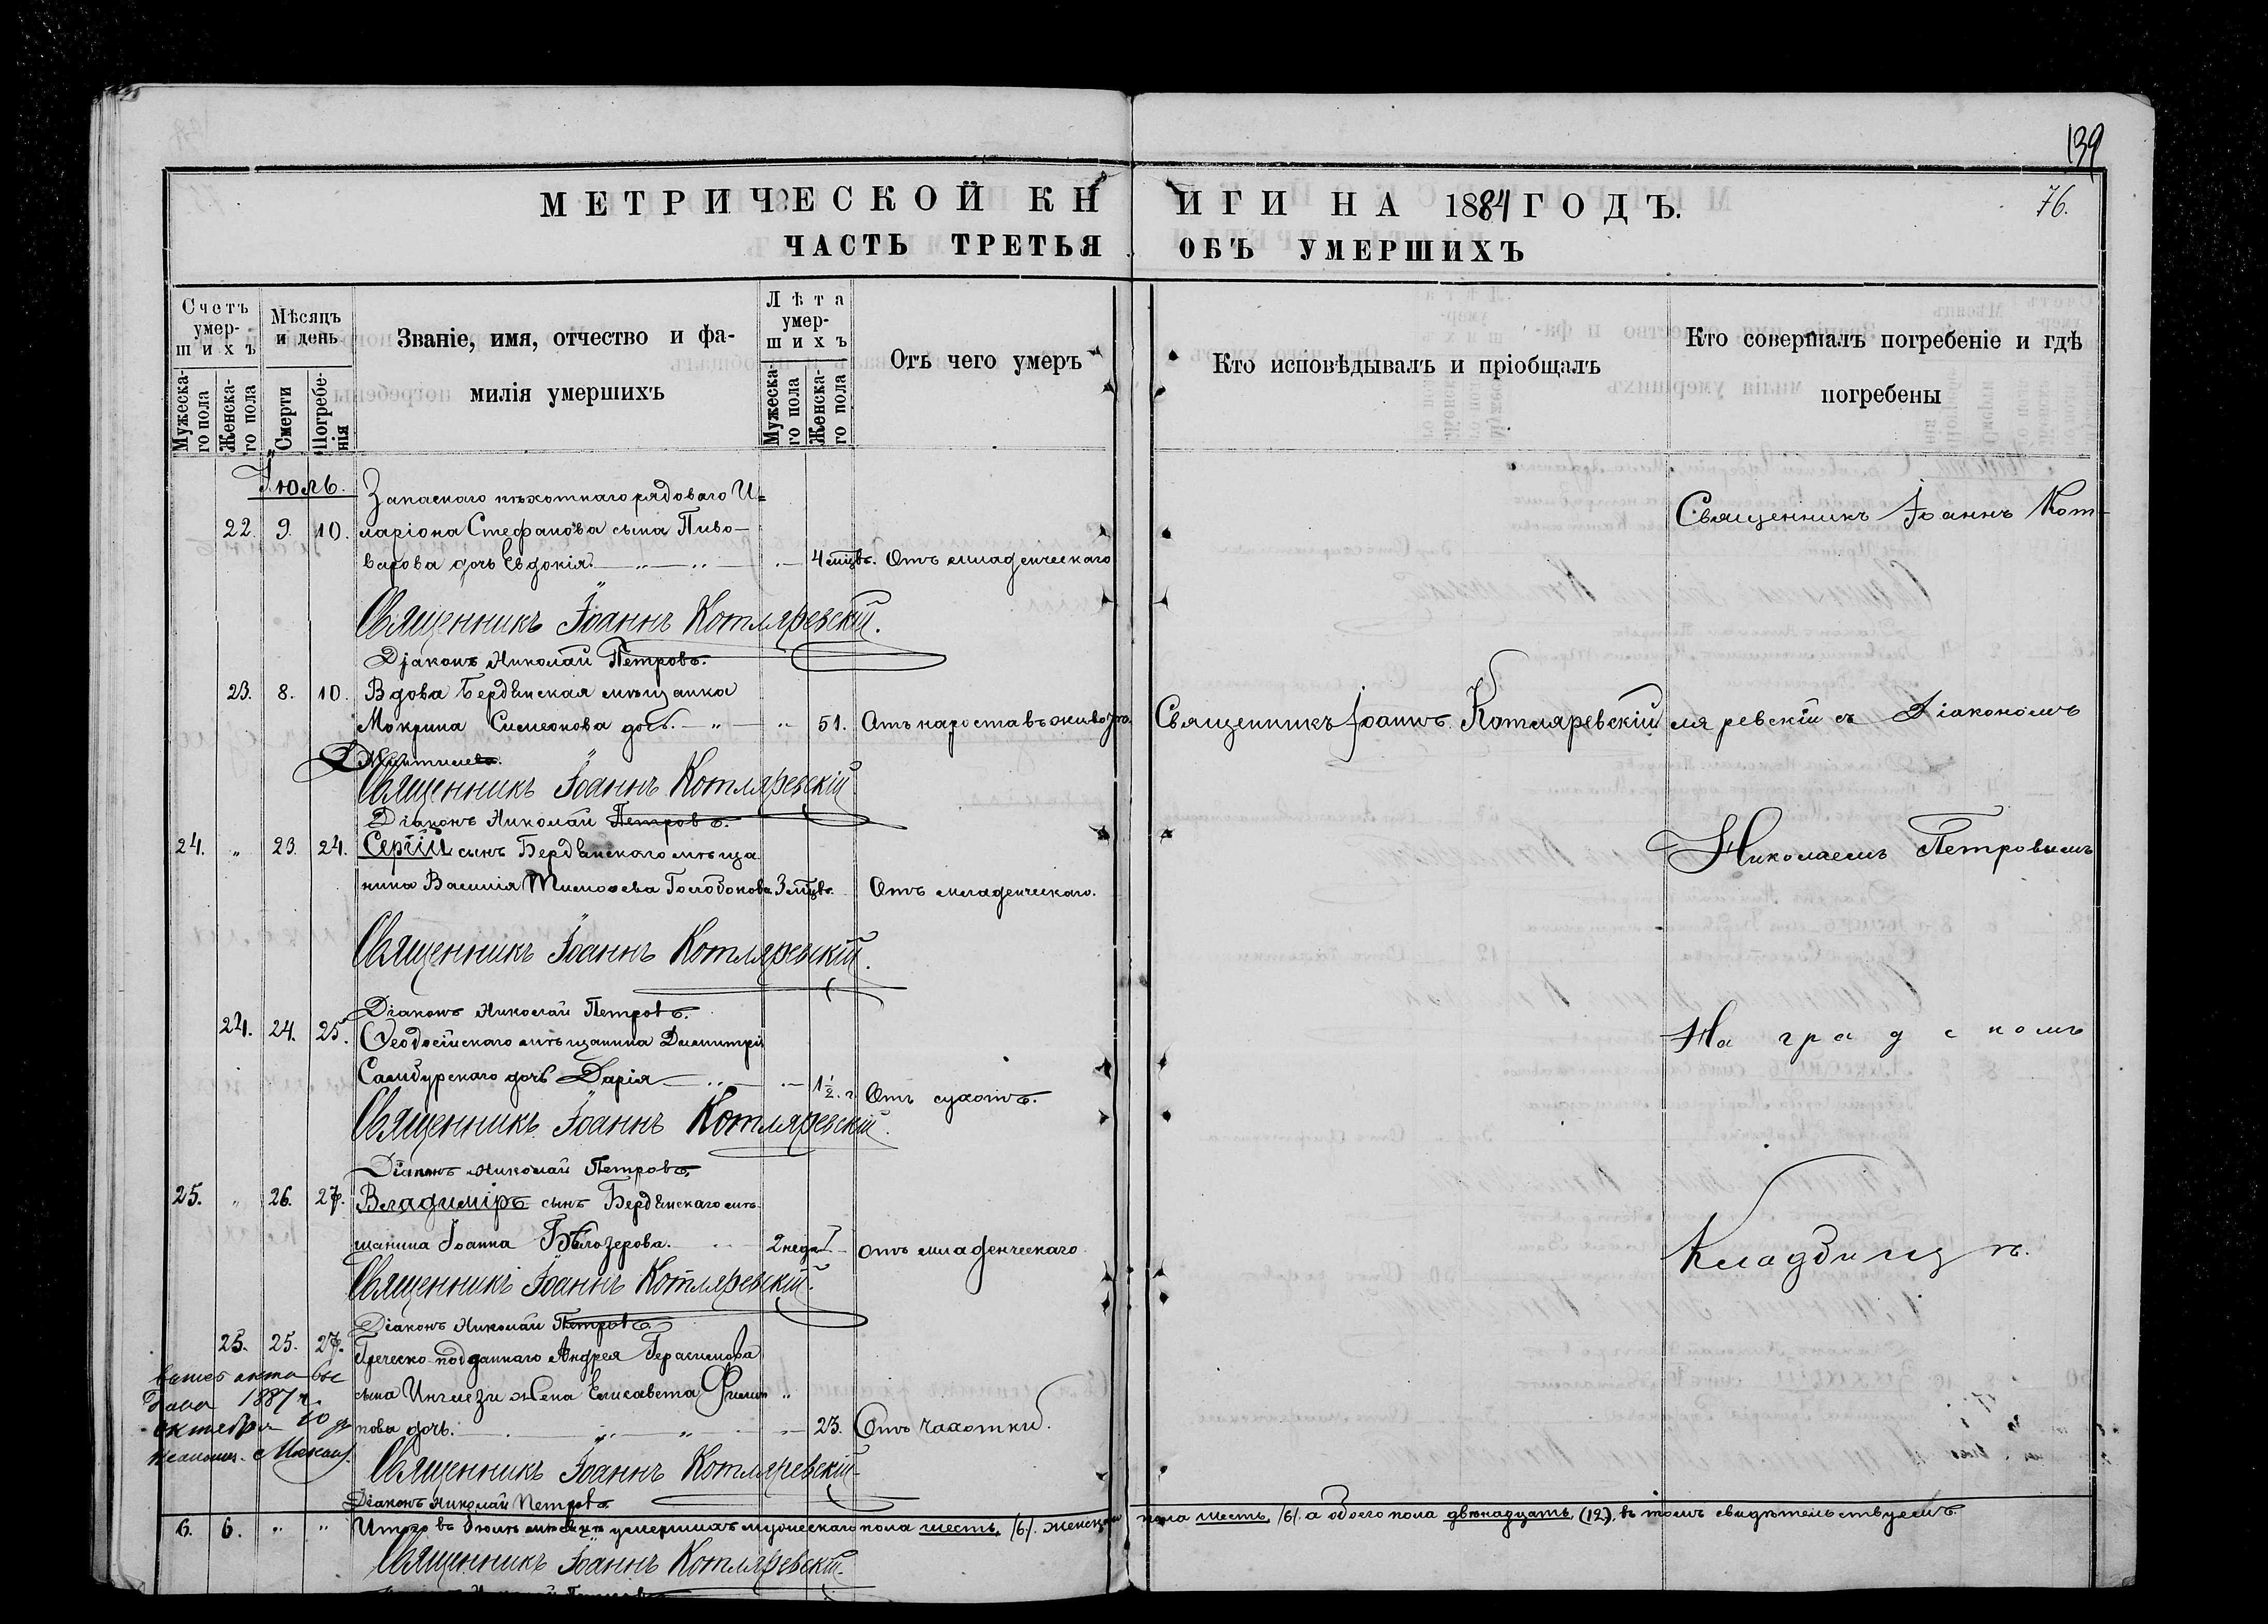 139
МЕТРИЧЕСКОЙ КНИГИ НА 1884 ГОДЪ.
76.
ЧАСТЬ ТРЕТЬЯ ОБЪ УМЕРШИХЪ
Счетъ умер-
шихъ
Мужеска-
го пола
Женска-
го пола
Мѣсяцъ
и день
Смерти
Погребе-
нія
Званіе, имя, отчество и фа-
милія умершихъ
Лѣта
умер-
шихъ
Мужеска-
го пола
Женска-
го пола
Отъ чего умеръ
Кто исповѣдывалъ и пріобщалъ
Кто совершалъ погребеніе и гдѣ
погребены
Іюль.
Запаснаго пѣхотнаго рядоваго И=
22. 9. 10. ларіона Стефанова сына Пиво-
варова дочь Евдокія. 4 мцвъ. Отъ младенческаго
Священникъ Іоаннъ Кот-
Священникъ Іоаннъ Котляревскій.
Діаконъ Николай Петровъ.
23. 8. 10. Вдова Бердянская мѣщанка
Мокрина Симеонова дочь 51. Отъ нароста въ животѣ. Священникъ Іоаннъ Котляревскій ляревскій съ Діакономъ
Священникъ Іоаннъ Котляревскій
Діаконъ Николай Петровъ.
24. " 23. 24. Сергій сынъ Бердянскаго мѣща
нина Василія Тимоѳева 3 мцвъ. Отъ младенческаго.
Николаемъ Петровымъ
Священникъ Іоаннъ Котляревскій.
Діаконъ Николай Петровъ.
24. 24. 25. Ѳеодосійскаго мѣщанина Димитрія
Самбурскаго дочь Дарія 1 1/2 г. Отъ сухотъ.
На градскомъ
Священникъ Іоаннъ Котляревскій.
Діаконъ Николай Петровъ.
25. " 26. 27. Владиміръ сынъ Бердянскаго мѣ-
щанина Іоанна Бѣлозерова. 2 неде. Отъ младенческаго.
Кладбищѣ.
Священникъ Іоаннъ Котляревскій.
Діаконъ Николай Петровъ.
25. 25. 27. Греческо-подданнаго Андрея Герасимова
сына Инглези жена Елисавета Филип "
пова дочь. 23. Отъ чахотки.
1887 г.
октября 10 д.
Священникъ Іоаннъ Котляревскій
Діаконъ Николай Петровъ
6. 6. " " Итого въ Іюлѣ мѣсяцѣ умершихъ мужескаго пола шесть /6/. женскаго пола шесть /6/. а обоего пола двѣнадцать (12), въ томъ свидѣтельствуемъ.
Священникъ Іоаннъ Котляревскій.